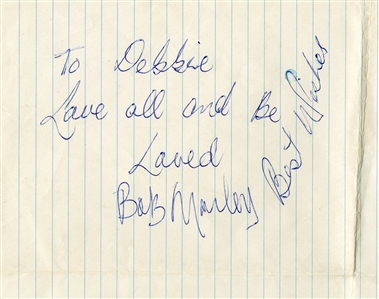 To Debbie
Love all and Be
Loved
Bob Marley
Best Wishes